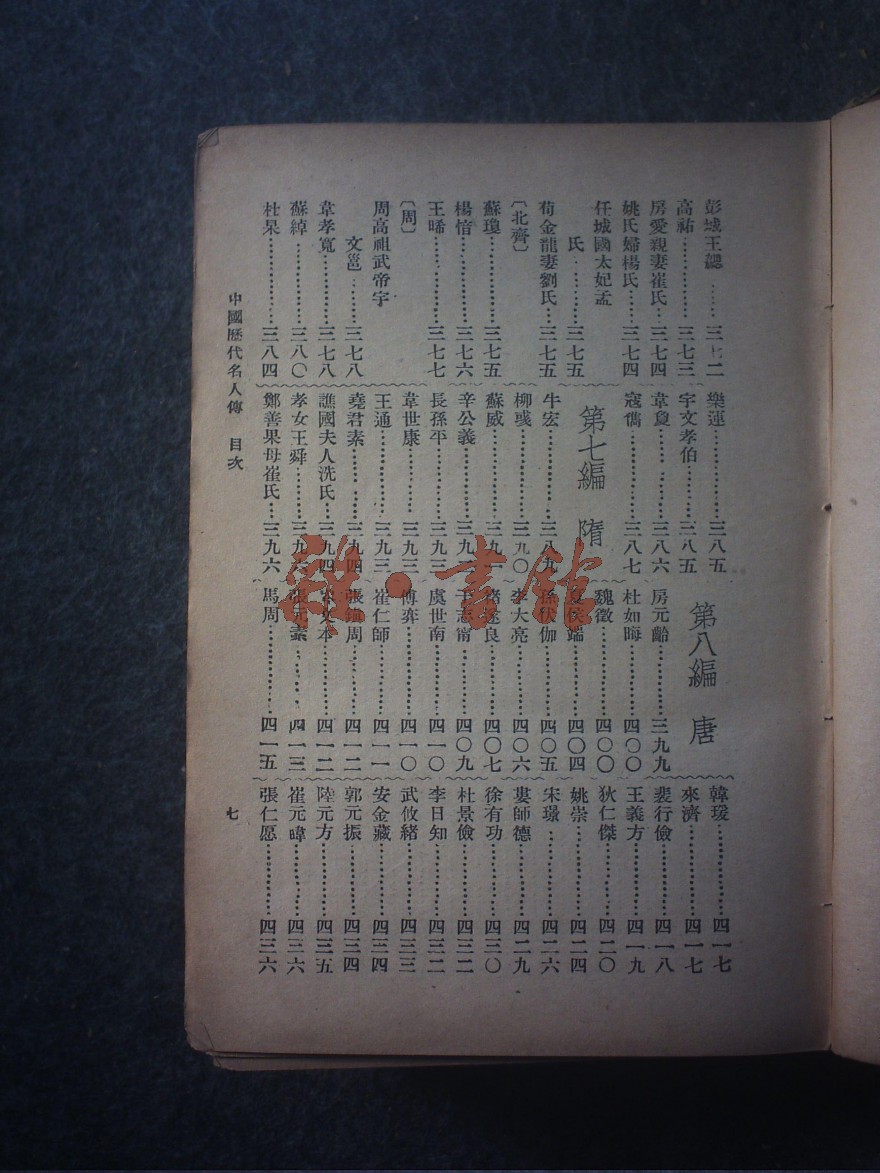 彭城王勰……三七二
高祐………………三七三
房愛親妻崔氏…三七四
姚氏婦楊氏……三七四
任城國太妃孟
氏…………三七五
荀金龍妻劉氏…三七五
〔北齊〕
蘇瓊………………三七五
楊愔………………三七六
王晞………………三七七
〔周〕
周高祖武帝宇
文邕………三七八
韋孝寬……………三七八
蘇綽………………三八〇
杜杲………………三八四
樂運………………三八五
宇文孝伯…………三八五
韋敻………………三八六
寇儁………………三八七
第七編 隋
牛宏………………三八九
柳彧………………三九〇
蘇威………………三九一
辛公義……………三九二
長孫平……………三九三
韋世康……………三九三
王通………………三九三
堯君素……………三九四
譙國夫人洗氏……三九四
孝女王舜…………三九六
鄭善果母崔氏……三九六
第八編 唐
房元齡……………三九九
杜如晦……………四〇〇
魏徵………………四〇〇
夏侯端……………四〇四
孫伏伽……………四〇五
李大亮……………四〇六
褚遂良……………四〇七
于志甯……………四〇九
虞世南……………四一〇
傅奕………………四一〇
崔仁師……………四一一
張鎮周……………四一二
岑文本……………四一二
張元素……………四一三
馬周………………四一五
韓瑗………………四一七
來濟………………四一七
裴行儉……………四一八
王義方……………四一九
狄仁傑……………四二〇
姚崇………………四二四
宋璟………………四二六
婁師德……………四二九
徐有功……………四三〇
杜景儉……………四三二
李日知……………四三二
武攸緒……………四三三
安金藏……………四三四
郭元振……………四三四
陸元方……………四三五
崔元暐……………四三六
張仁愿……………四三六
中國歷代名人傳 目次
七
雜·書館